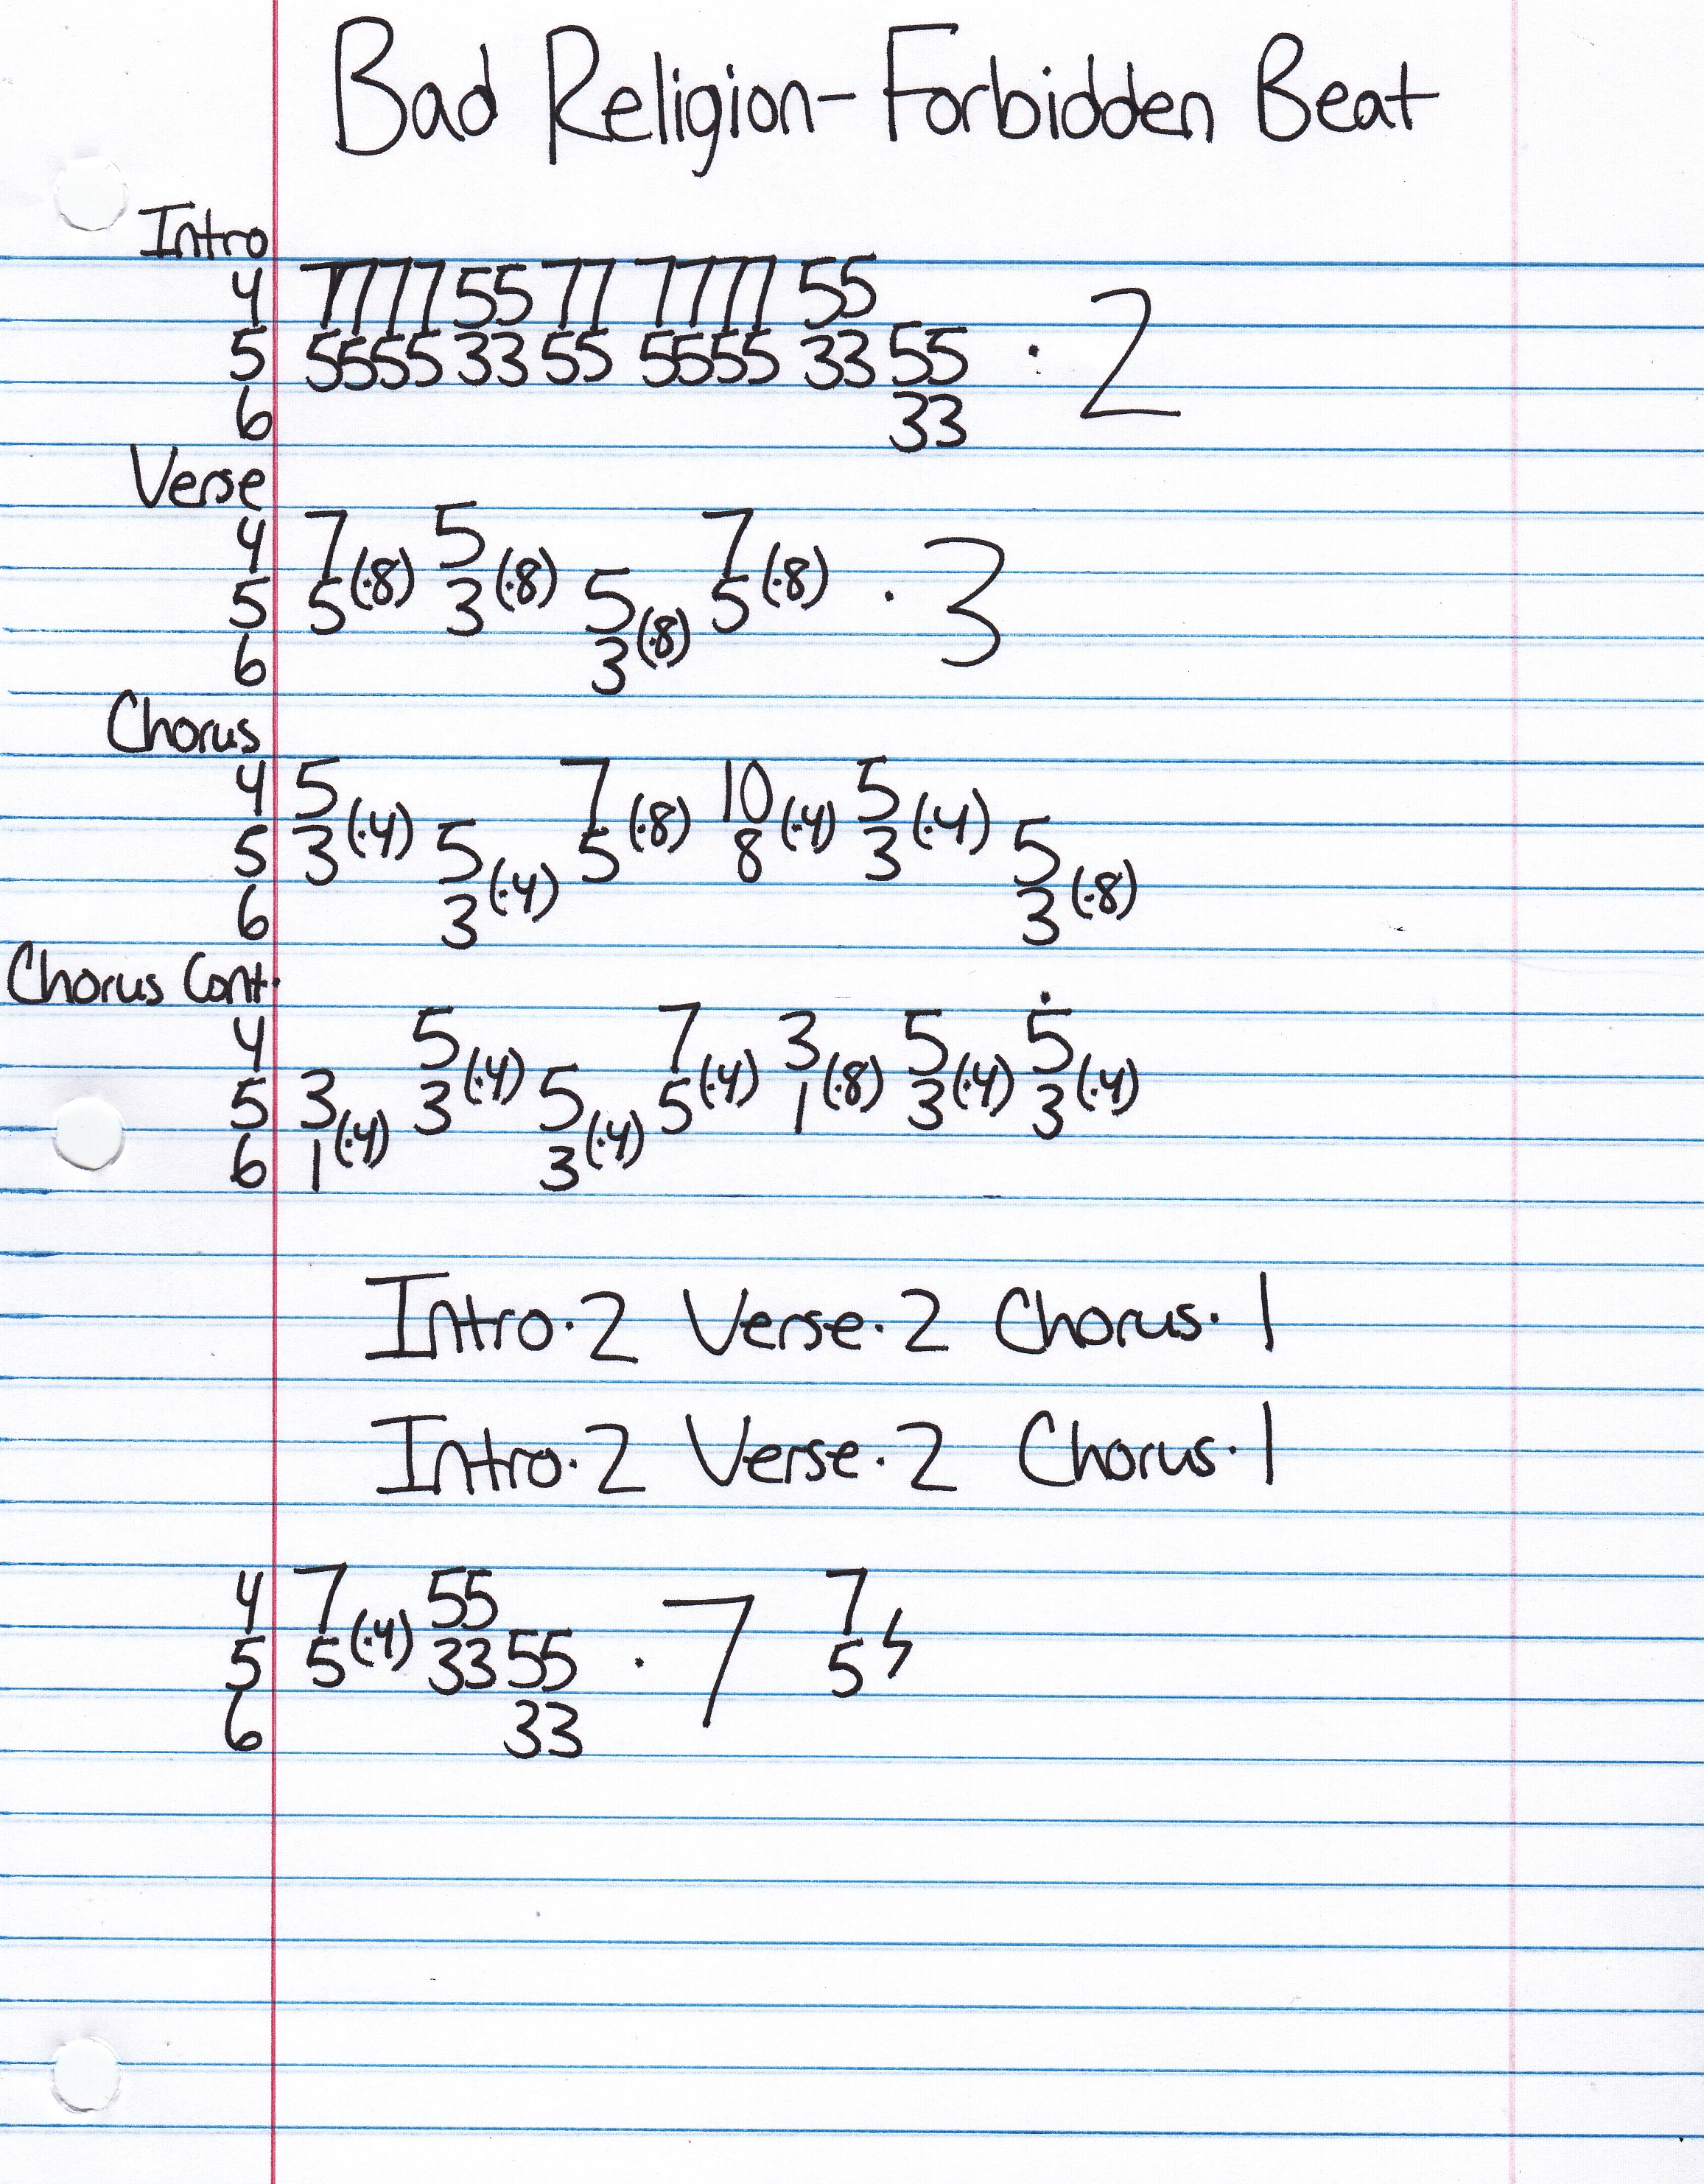 Bad Religion - Forbidden Beat
Intro
4 7777 55 77 7777 55
5 5555 33 55 5555 33 55 · 2
6 33
Verse
4 7 5 7
5 5 (·8) 3 (·8) 5 5 (·8) · 3
6 3 (·8)
Chorus
4 5 7 10 5
5 3 (·4) 5 5 (·8) 8 (·4) 3 (·4) 5
6 3 (·4) 3 (·8)
Chorus Cont.
4 5 7 3 5 5
5 3 3 (·4) 5 5 (·4) 1 (·8) 3 (·4) 3 (·4)
6 1 (·4) 3 (·4)
Intro · 2 Verse · 2 Chorus · 1
Intro · 2 Verse · 2 Chorus · 1
4 7 55 7
5 5 (·4) 33 55 · 7 5
6 33